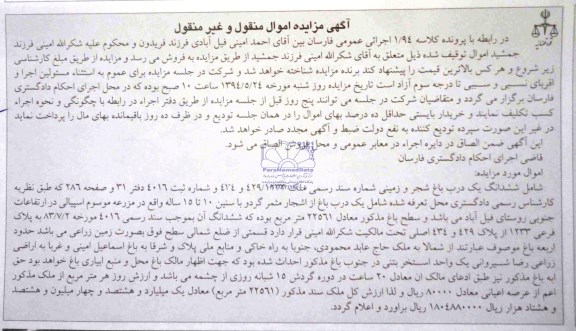 آگهی مزایده اموال منقول و غیر منقول
در رابطه با پرونده کلاسه ۱/۹۴ اجرائی عمومی فارسان بین آقای احمد امینی فیل آبادی فرزند فریدون و محکوم علیه شکرالله امینی فرزند
جمشید اموال توقیف شده ذیل متعلق به آقای شکرالله امینی فرزند جمشید از طریق مزایده به فروش می رسد و مزایده از طریق مبلغ کارشناسی
زیر شروع و هر کس بالاترین قیمت را پیشنهاد کند برنده مزایده شناخته خواهد شد و شرکت در جلسه مزایده برای عموم به استثناء مسئولین اجرا و
اقربای نسبی و سببی تا درجه سوم آزاد است تاریخ مزایده روز شنبه مورخه ۱۳۹۴/۵/۲۴ ساعت ۱۰ صبح بوده که در محل اجرای احکام دادگستری
فارسان برگزار می گردد و متقاضیان شرکت در جلسه می توانند پنج روز قبل از جلسه مزایده از طریق دفتر اجراء در رابطه با چگونگی و نحوه اجراء
کسب تکلیف نمایند و خریدار بایستی حداقل ده درصد بهای اموال را در همان جلسه تودیع و در ظرف ده روز باقیمانده بهای مال را پرداخت نماید
در غیر این صورت سپرده تودیع کننده به نفع دولت ضبط و آگهی مجدد صادر خواهد شد.
این آگهی ضمن الصاق در دایره اجراء در معابر عمومی و محل فروش الصاق می شود.
قاضی اجرای احکام دادگستری فارسان
اموال مورد مزایده:
شامل ششدانگ یک درب باغ شجر و زمینی شماره سند رسمی ملک ۴۲۹/۱۲۳۳ و ۴۳۴ و شماره ثبت ۴۰۱۶ دفتر ۳۱ و صفحه ۲۸۶ که طبق نظریه
کارشناس رسمی دادگستری محل تعرفه شده شامل یک درب باغ از اشجار مثمر گردو با سنین ۱۰ تا ۱۵ ساله واقع در مزرعه موسوم اسپیالی در ارتفاعات
جنوبی روستای فیل آباد می باشد و سطح باغ مذکور معادل ۲۲۵۶۱ متر مربع بوده که ششدانگ آن بموجب سند رسمی ۴۰۱۶ مورخه ۸۳/۷/۲ به پلاک
فرعی ۱۲۳۳ از پلاک ۴۲۹ و ۴۳۴ اصلی تحت مالکیت شکرالله امینی قرار دارد قسمتی از ضلع شمالی سطح فوق بصورت زمین زراعی می باشد حدود
اربعه باغ موصوف عبارتند از شمالا به ملک حاج عابد محمودی، جنوبا به راه خاکی و منابع ملی پلاک و شرقا به باغ اسماعیل امینی و غربا به اراضی
زراعی رضا شیروانی یک واحد استخر بتنی در جنوب باغ مذکور احداث شده بود که جهت اظهار مالک باغ محل و منبع ابیاری باغ خواهد بود حق
ابه باغ مذکور نیز طبق ادعای مالک ان معادل ۲۰ ساعت در دوره گردش ۱۵ شبانه روزی از چشمه می باشد و ارزش روز هر متر مربع از ملک مذکور
اعم از عرصه اعیانی معادل ۸۰۰۰۰ ریال و لذا ارزش کل ملک سند مذکور (۲۲۵۶۱ متر مربع) معادل یک میلیارد و هشتصد و چهار میلیون و هشتصد
و هشتاد هزار ریال ۱۸۰۴۸۸۰۰۰۰ ریال براورد و اعلام گردد.